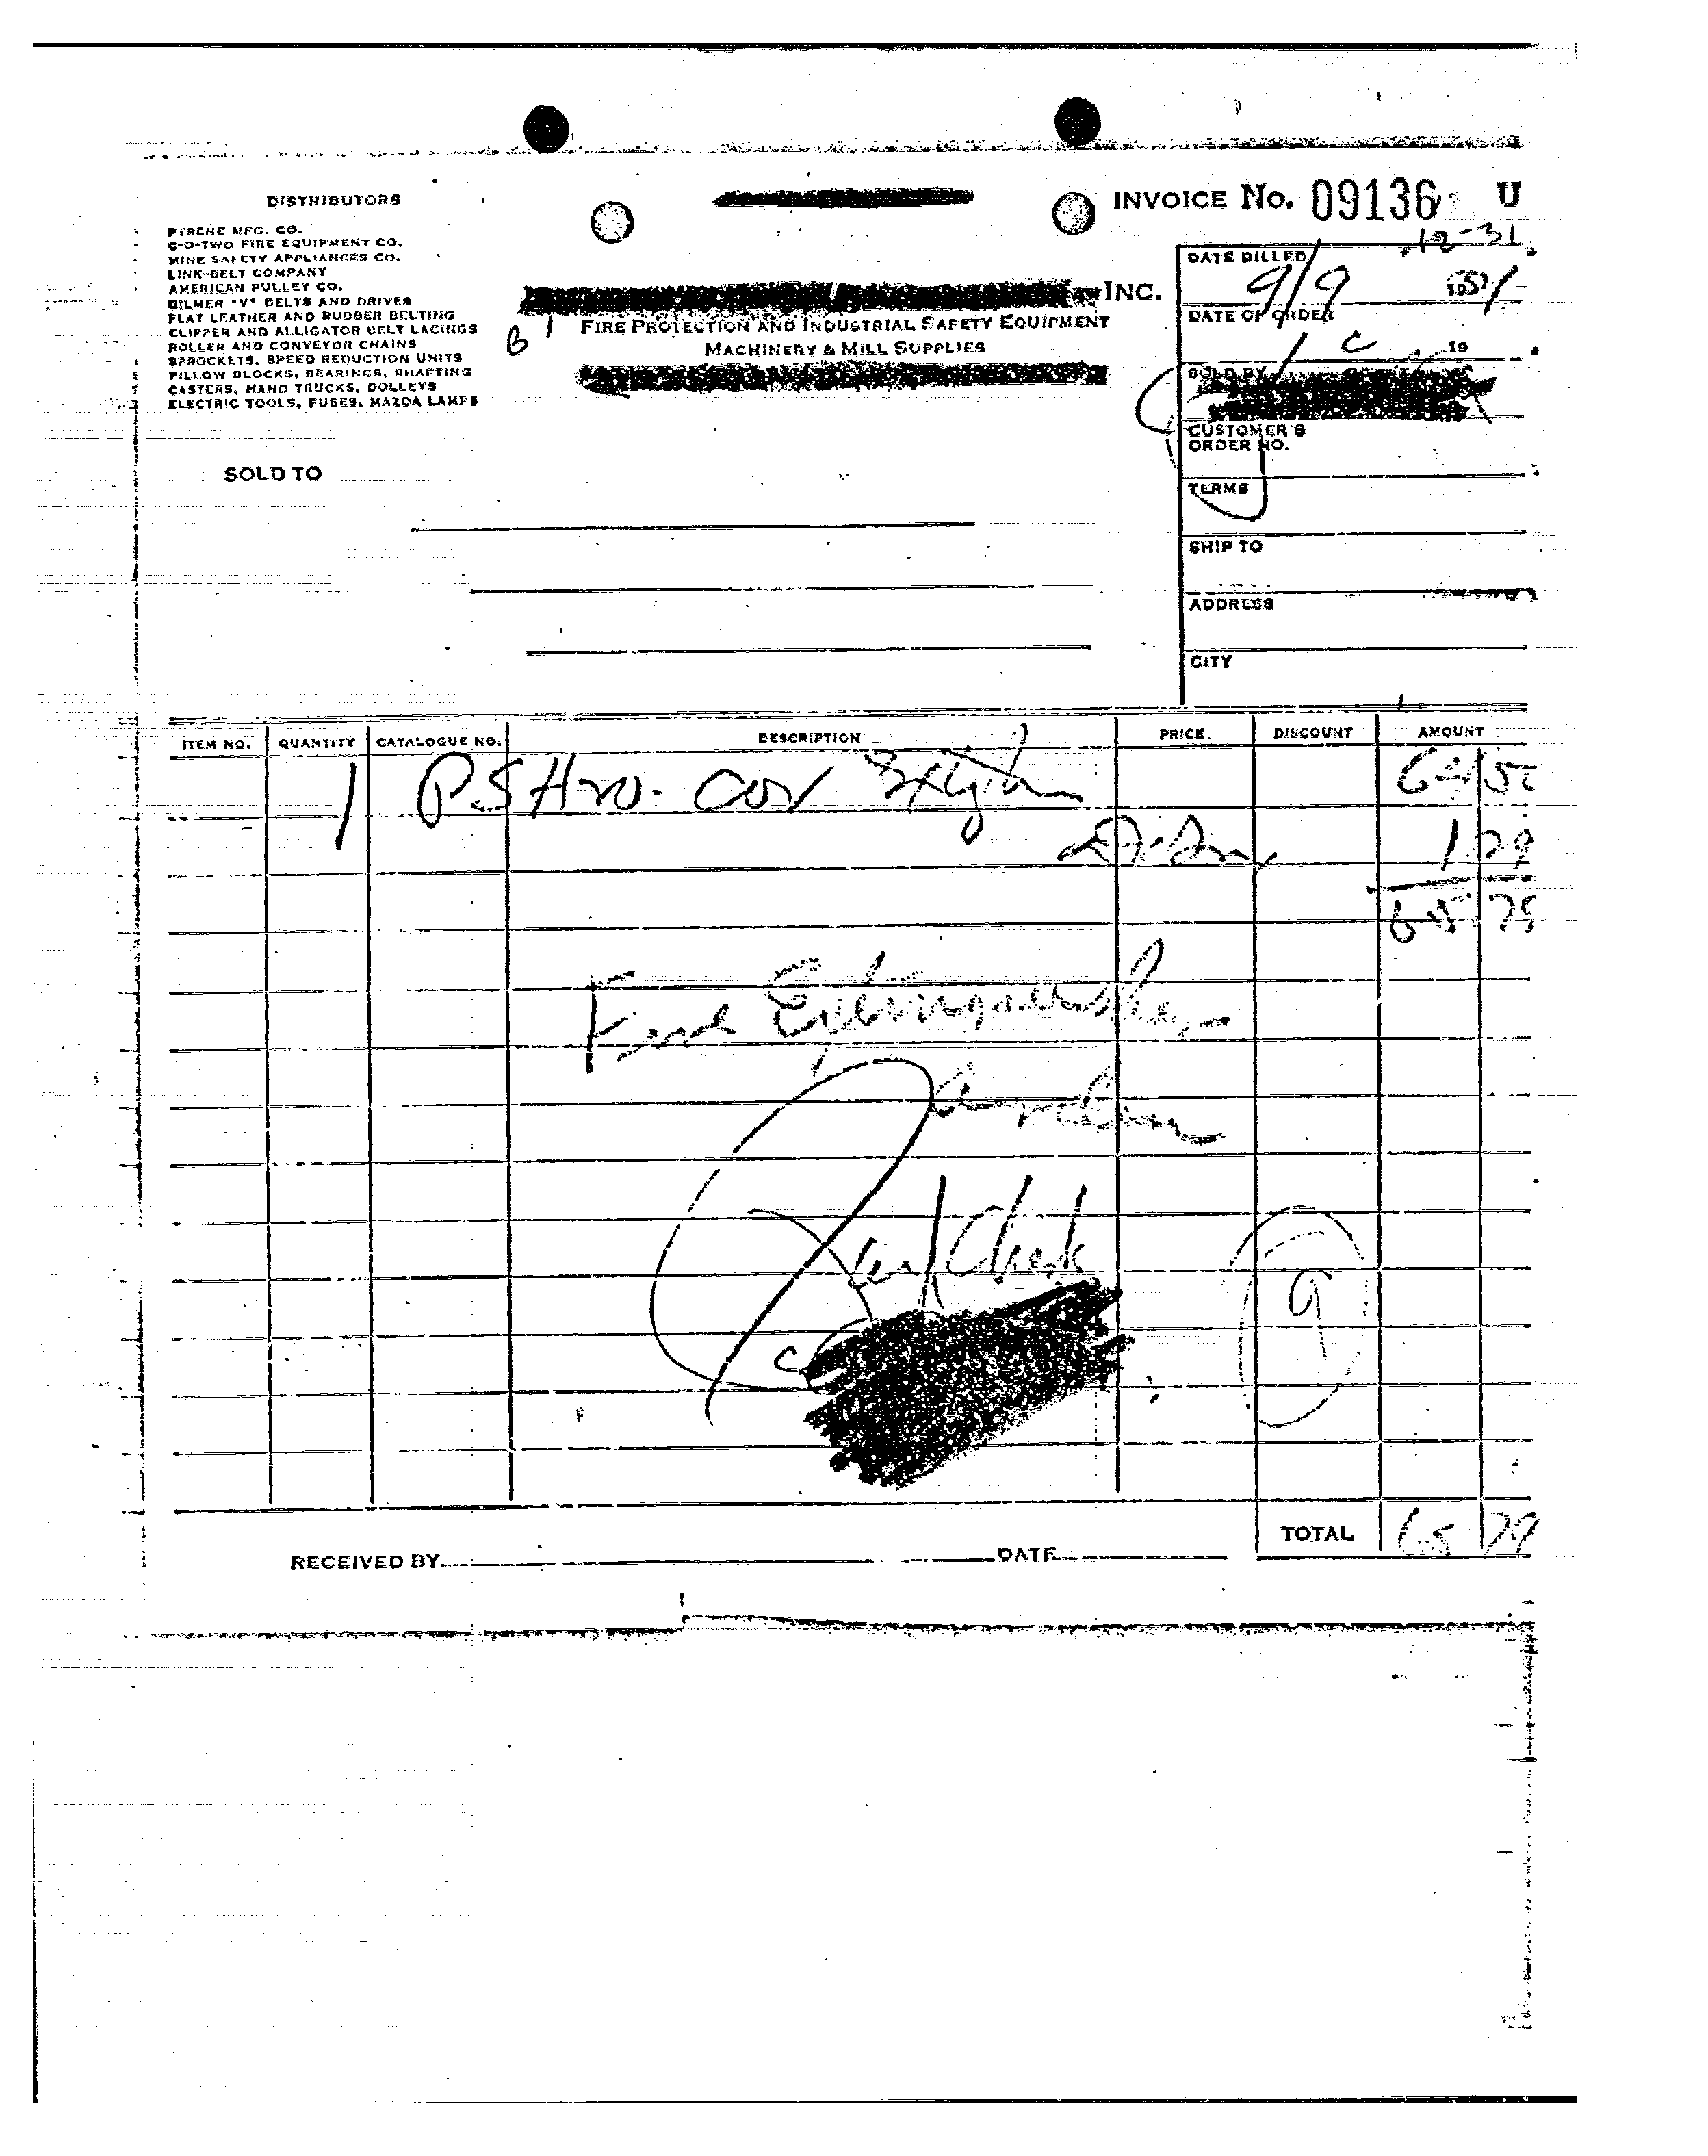 DISTRIBUTORS
PYRENE MFG. CO.
C-O-TWO FIRE EQUIPMENT CO.
MINE SAFETY APPLIANCES CO.
LINK-BELT COMPANY
AMERICAN PULLEY CO.
GILMER "V" BELTS AND DRIVES
FLAT LEATHER AND RUBBER BELTING
CLIPPER AND ALLIGATOR BELT LACINGS
ROLLER AND CONVEYOR CHAINS
SPROCKETS, SPEED REDUCTION UNITS
PILLOW BLOCKS, BEARINGS, SHAFTING
CASTERS, HAND TRUCKS, DOLLEYS
ELECTRIC TOOLS, FUSES, MAZDA LAMPS
INC.
FIRE PROTECTION AND INDUSTRIAL SAFETY EQUIPMENT
MACHINERY & MILL SUPPLIES
INVOICE No. 09136 U
12-31
DATE BILLED 9/9
DATE OF ORDER
19
SOLD BY
CUSTOMER'S
ORDER NO.
TERMS
SHIP TO
ADDRESS
CITY
SOLD TO
ITEM NO. QUANTITY CATALOGUE NO. DESCRIPTION PRICE DISCOUNT AMOUNT
1
1 29
Check
9
TOTAL 65 79
RECEIVED BY DATE